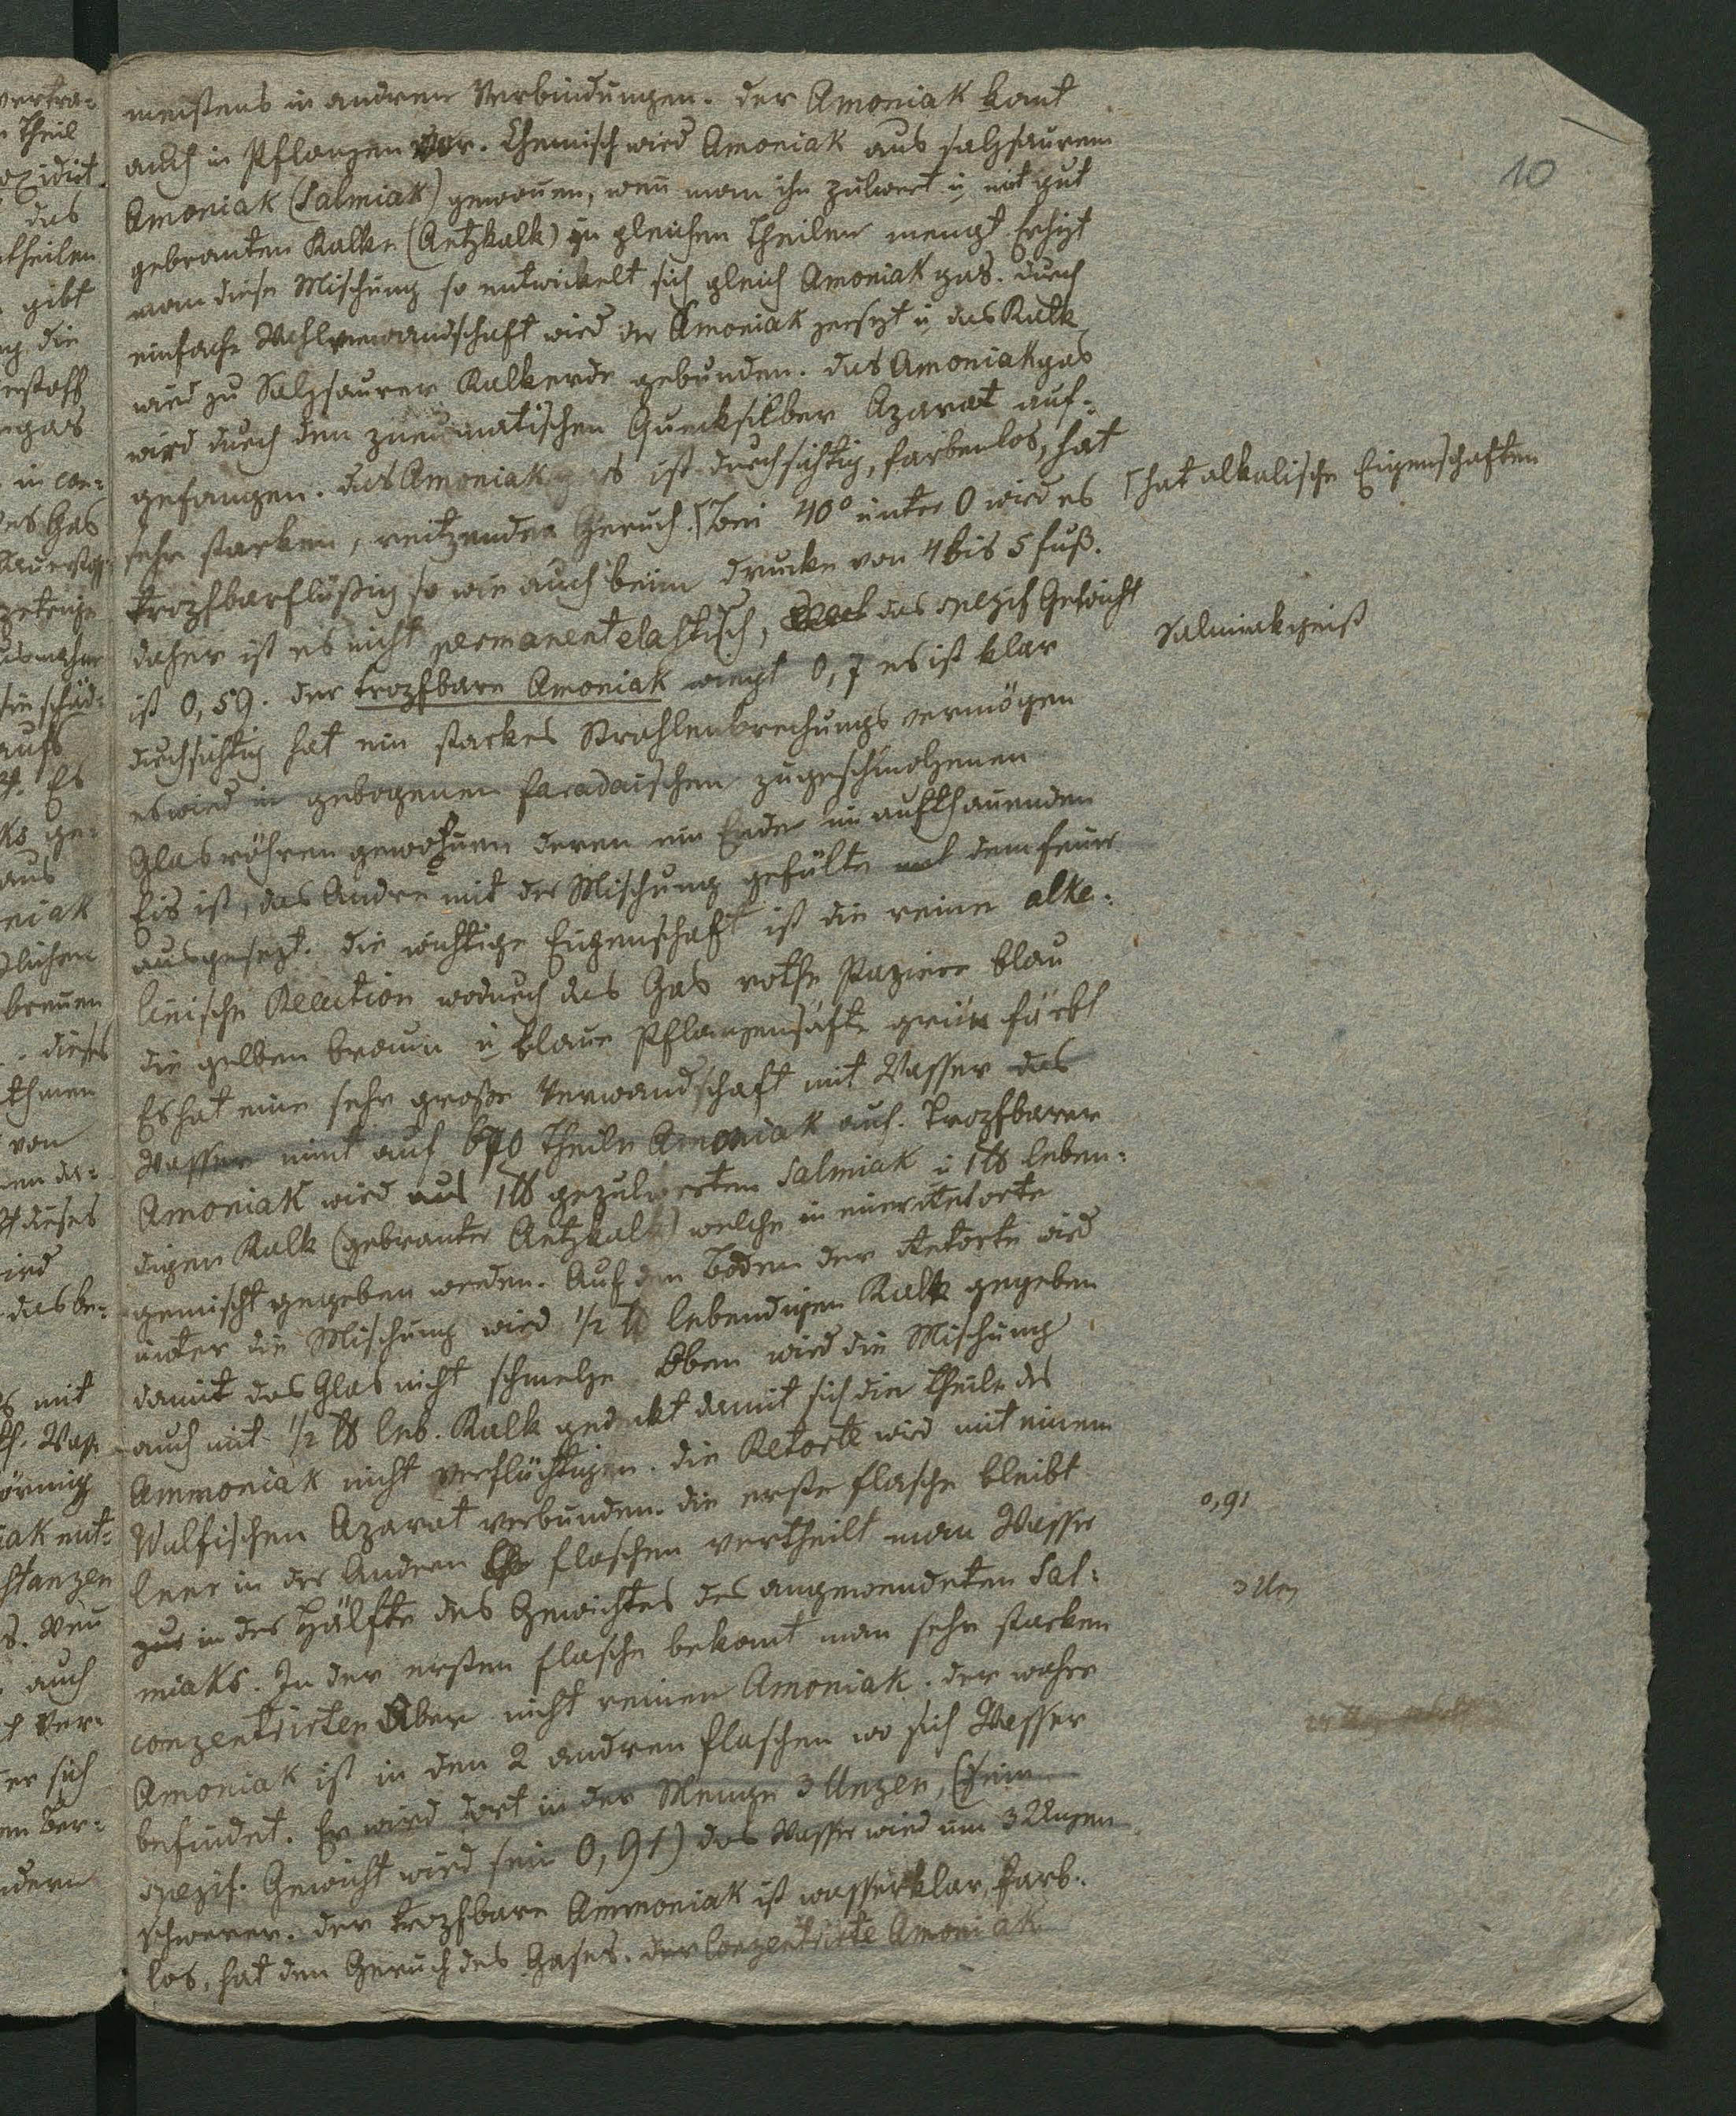 meistens in andren Verbindungen. der Amoniak komt
auch in Pflanzen vor. Chemisch wird Amoniak aus salzsaurem
Amoniak (Salmiak) gewonen, wen man ihn pulvert u mit gut
gebranten Kalke (Aetzkalk) zu gleichen Theilen mengt. Erhizt
man diese Mischung so entwickelt sich gleich Amoniak gas. durch
einfache Wahlverwandschaft wird der Amoniak zersezt u das Kalk
wird zu Salzsaurer Kalkerde gebunden. das Amoniakgas
wird durch den pneumatischen Quecksilber Aparat auf-
gefangen. das Amoniakgas ist durchsichtig, farbenlos, hat
sehr starken, reitzenden Geruch. ⌈bei 40° unter 0 wird es
tropfbarflüßig so wie auch beim drucke von 4 bis 5 fuß.
daher ist es nicht permanent elastisch, das spezif Gewicht
ist 0,59. der tropfbare Amoniak wiegt 0,7 es ist klar
durchsichtig hat ein starkes Strahlenbrechungs vermögen
es wird in gebogenen faradaischen zugeschmolzenen
Glasröhren gewonen deren ein Ende in aufthauenden
Eis ist, das Andre mit der Mischung gefülte mit dem feuer
ausgesezt. die wichtige Eigenschaft ist die reine alka-
linische Reaction wodurch das Gas rothe Papiere blau
die gelben braun u blaue Pflanzensäfte grün färbt
Es hat eine sehr große Verwandschaft mit Wasser das
Wasser nimt auf 670 Theile Amoniak auf. Tropfbarer
Amoniak wird aus 1 ℔ gepulverten Salmiak u 1 ℔ leben-
digen Kalk (gebranter Aetzkalk) welche in einer Retorte
gemischt gegeben werden. Auf den Boden der Retorte wird
unter die Mischung wird 1/2 ℔ lebendigen Kalk gegeben
damit das Glas nicht schmelze Oben wird die Mischung
auch mit 1/2 ℔ leb. Kalk gedekt damit sich die Theile des
Ammoniak nicht verflüchtigen. die Retorte wird mit einem
Wulfischen Aparat verbunden. die erste flasche bleibt
leer in der Andern flaschen vertheilt man Wasser
zur in der Hälfte des Gewichtes des angewendeten Sal-
miaks. In der ersten flasche bekomt man sehr starken
conzentrirten Aber nicht reinen Amoniak. der wahre
Amoniak ist in den 2 andren flaschen wo sich Wasser
befindet. Er wird dort in der Menge 3 Unzen, (sein
spezif. Gewicht wird sein 0,91) das Wasser wird um 3 Unzen
schwerer. der tropfbare Ammoniak ist wasserklar, farb-
los, hat den Geruch des Gases. der Conzentrirte Amoniak
10
⌈hat alkalische Eigenschaften
Salmiakgeist
0,91
3 Unz